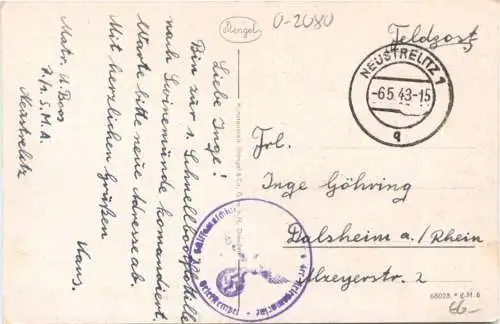 Stengel
0-2080
Feldpost
NEUSTRELITZ 1
-6.5.43-15
q
Liebe Inge!
Bin zur 1. Schnellbootflottille
nach Swinemünde kommandiert.
Warte bitte neue Adresse ab.
Mit herzlichen Grüßen
Hans.
Matr.
S.M.A.
Neustrelitz
Frl.
Inge Göhring
Dalsheim a./Rhein
Alzeyerstr. 2
Briefstempel
68028 * E.M. 6
66-